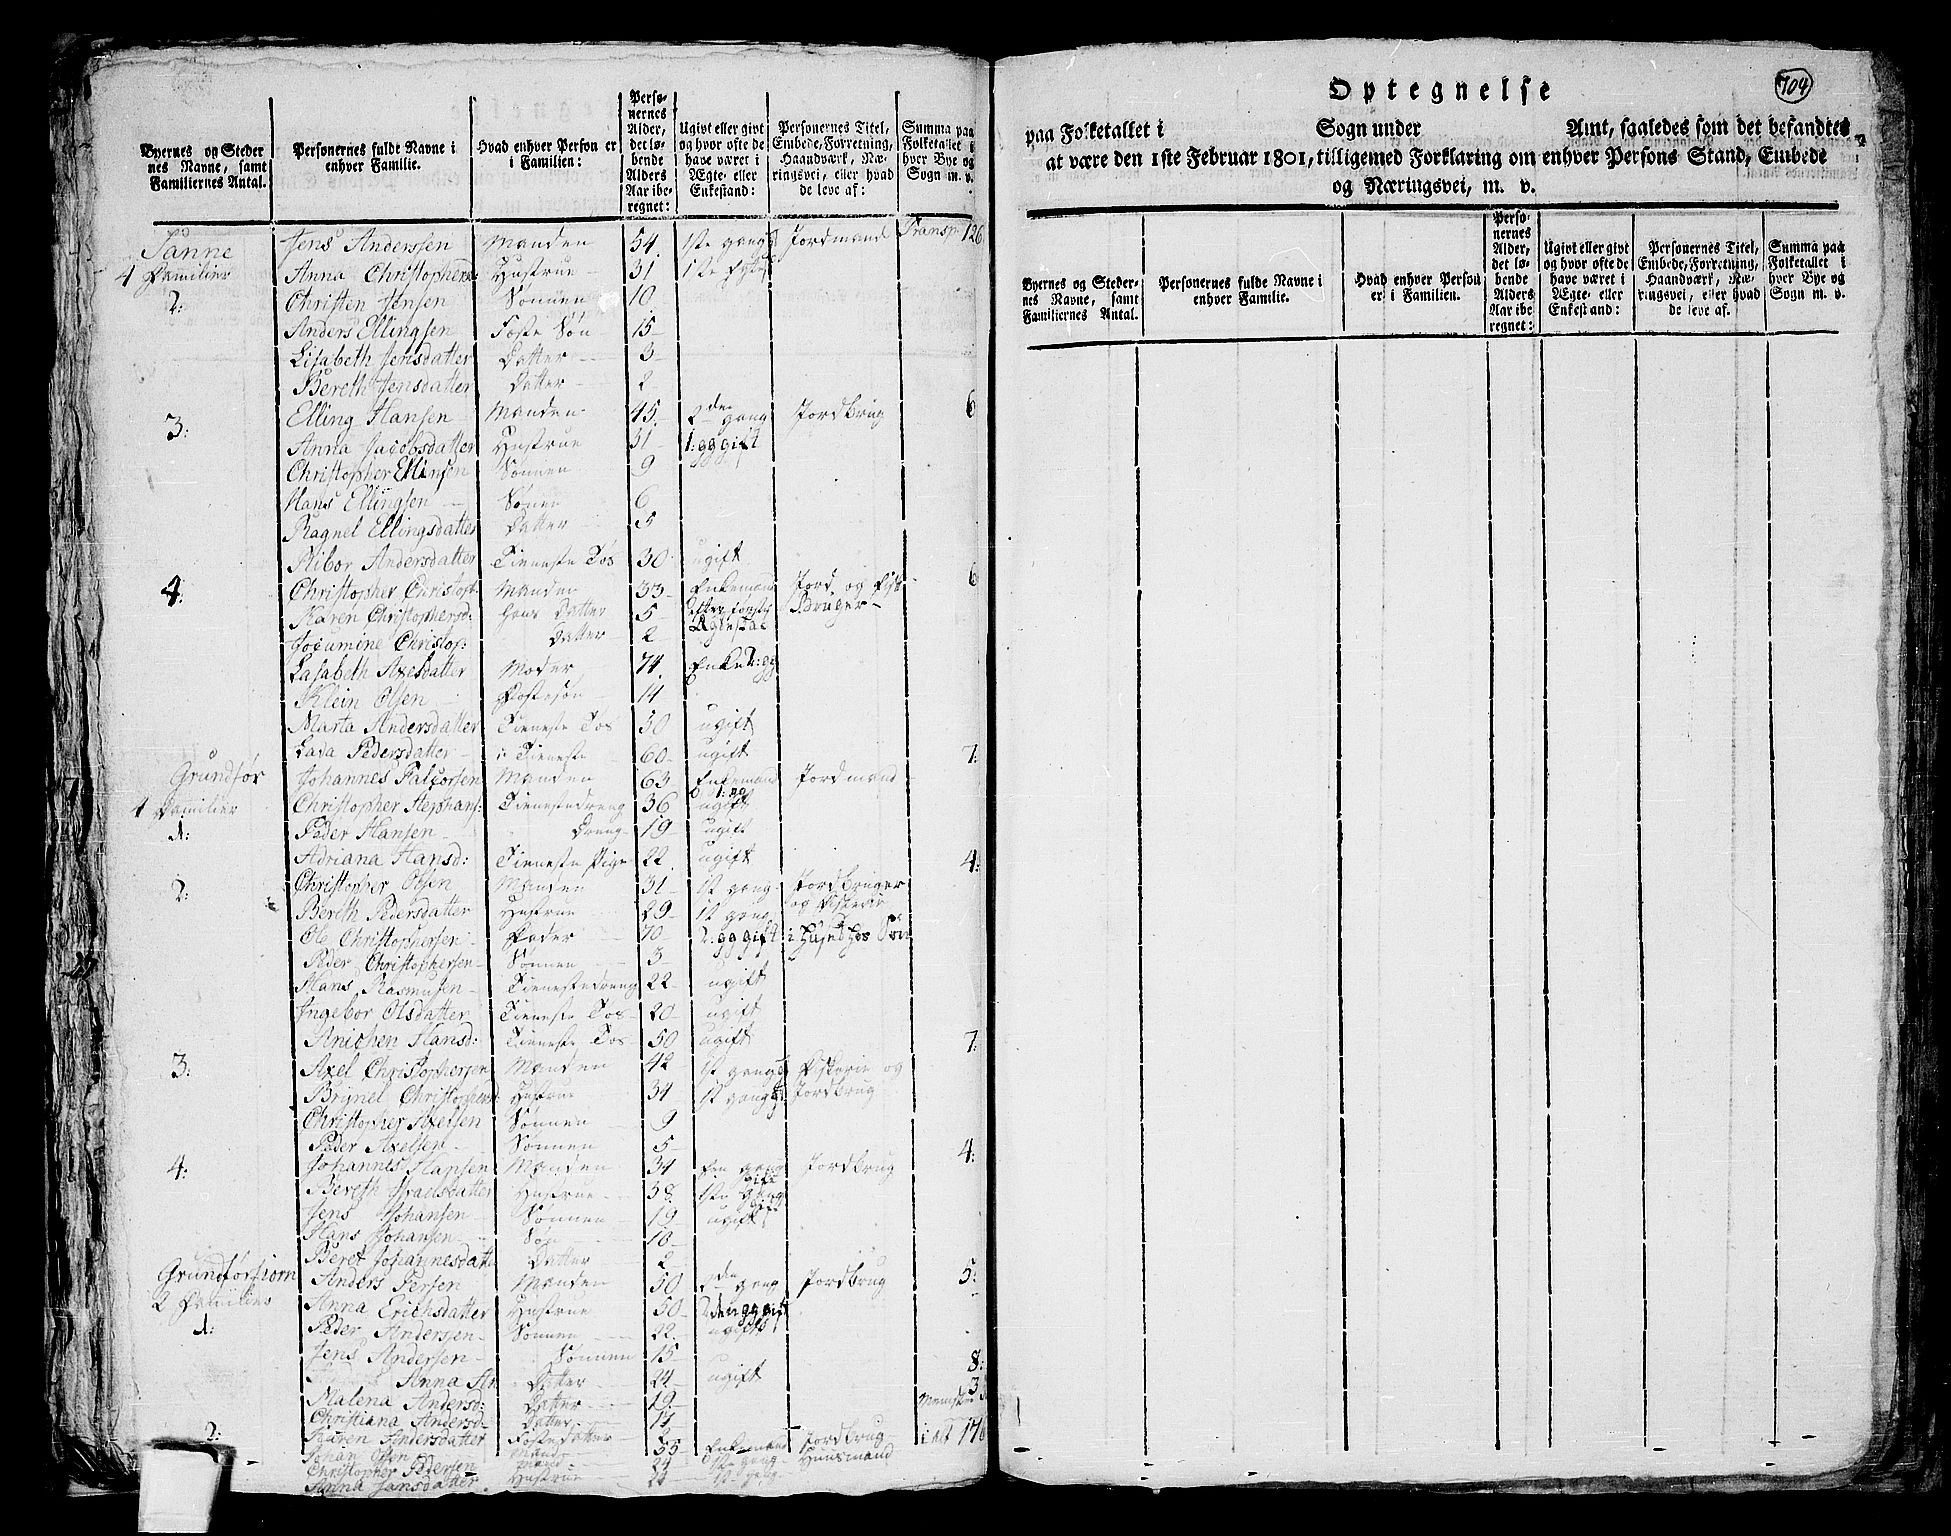 Byernes og Steder
nes Navne, samt
Familiernes Antal.
Personernes fulde Navne i
enhver Familie.
Hvad enhver Person er
i Familien:
Perso-
nernes
Alder,
det lø-
bende
Alders
Aar ibe-
regnet:
Ugivt eller givt
og hvor ofte de
have været i
Ægte- eller
Enkestand:
Personernes Titel,
Embede, Forretning,
Haandværk, Næ-
ringsvei, eller hvad
de leve af:
Summa paa
Folketallet i
hver Bye og
Sogn m. v.
Sanne Jens Andersen Manden 54. 1ste gang Jordmand Transp 126
4 Familier Anna Christophers: Hustrue 31 1ste
2: Christen Jensen Sønnen 10
Anders Ellingsen Foste Søn 15
Lisabeth Jensdatter Datter 3
Bereth Jensdatter Datter 2
3: Elling Hansen Manden 45. 2den gang Jordbrug 6
Anna Jacobsdatter Hustrue 31 1: gg gift
Christopher Ellinsen Sønnen 9
Hans Ellingsen Sønnen 6
Ragnel Ellingsdatter Datter 5
Ribor Andersdatter Tieneste Tøs 30 ugift
4: Christopher Christoph: Manden 33 Enkemand Jord og Fisk 6
Karen Christophersd: Hans Datter 5 Bruger
Jocumine Christop: Datter 2
Lisabeth Axelsdatter Moder 74. Enke 1: gg
Klein Olsen Fostesøn 14
Marta Andersdatter Tieneste Tøs 50 ugift
Pedersdatter i Tieneste 60 ugift 7:
Grundfør Johannes Falchsen Manden 63 Enkemand 1: gg Jordmand
4 Familier Christopher Stephans: Tienestedreng 36 ugift
1: Peder Hansen Dreng 19 ugift
Adriana Hansd: Tieneste Pige 22. ugift 4:
2: Christopher Olsen Manden 31 1st gang Jordbruger
Berith Pedersdatter Hustrue 29 1st gang og Fiskerie
Ole Christophersen Fader 70 2: gg gift i Huset hos Søn
Peder Christophersen Sønnen 3
Hans Rasmusen Tienestedreng 22 ugift
Ingebor Olsdatter Tieneste Tøs 20 ugift
Anichen Hansd: Tieneste Tøs 50 ugift 7:
3: Axel Christophersen Manden 42 1st gang Fiskerie og
Brynel Christophersd Hustrue 34 1st gang Jordbrug
Christopher Axelsen Sønnen 9
Peder Axelsen Sønnen 5 4:
4: Johannes Hansen Manden 34 gang gift Jordbrug
Bereth Hustrue 58 1ste gang gift
Jens Johansen Sønnen 19 ugift
Hans Johansen Søn 10
Beret Johannesdatte Datter 2
Anders Persen Manden 50 2den gang Jordbrug 5:
2 Familier Anna Erichsdatter Hustrue 50 2den gg gift
1: Peder Andersen Sønnen 22. ugift
Jens Andersen Sønnen 15 8:
Anna An Datter 24 ugift 3
Malena Andersd: Datter 19
Christiana Andersd Datter
2: Karen Andersdatter Fostedatter
Johan Olsen Mand 55 Enkemand Jordbrug i alt
Christopher Pedersen Mand 24 1ste gang Huusmand
Anna Jansdatter Hustrue 1ste gang
704
Optegnelse
paa Folketallet i Sogn under Amt, saaledes som det befandtes
at være den 1ste Februar 1801, tilligemed Forklaring om enhver Persons Stand, Embede
og Næringsvei, m. v.
Byernes og Steder-
nes Navne, samt
Familiernes Antal.
Personernes fulde Navne i
enhver Familie.
Hvad enhver Person
er i Familien.
Perso-
nernes
Alder,
det lø-
bende
Alders
Aar ibe
regnet:
Ugivt eller givt
og hvor ofte de
have været i
Ægte- eller
Enkestand:
Personernes Titel,
Embede, Forretning,
Haandværk, Næ-
ringsvei, eller hvad
de leve af.
Summa paa
Folketallet i
hver Bye og
Sogn m. v.